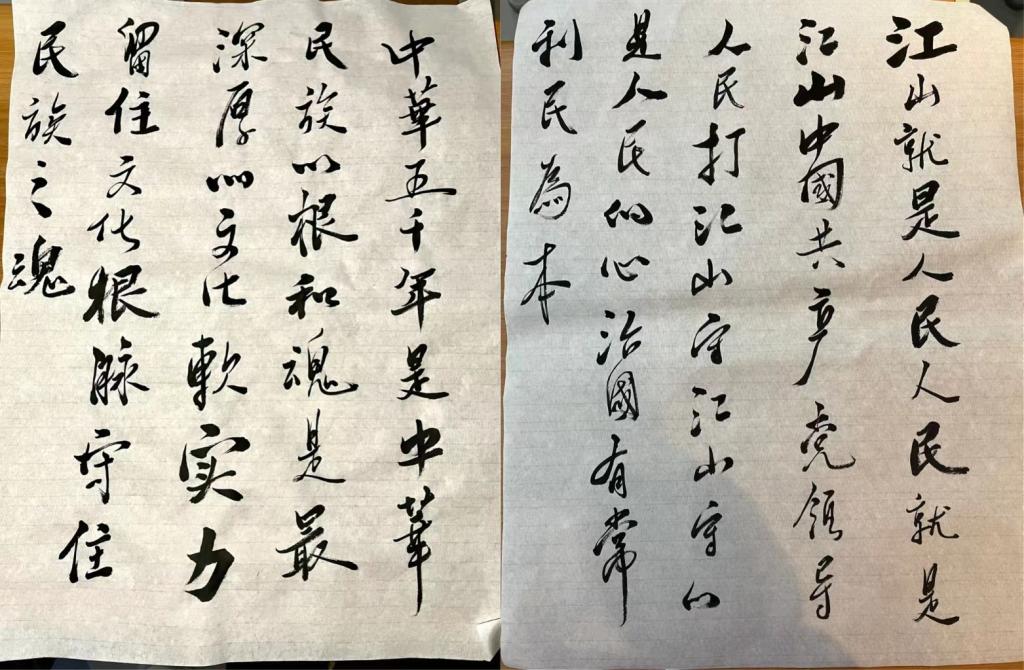 中華五千年是中華
民族的根和魂是最
深厚的文化軟实力
留住文化根脉守住
民族之魂
江山就是人民人民就是
江山中國共产党领导
人民打江山守江山守的
是人民的心治國有常
利民為本